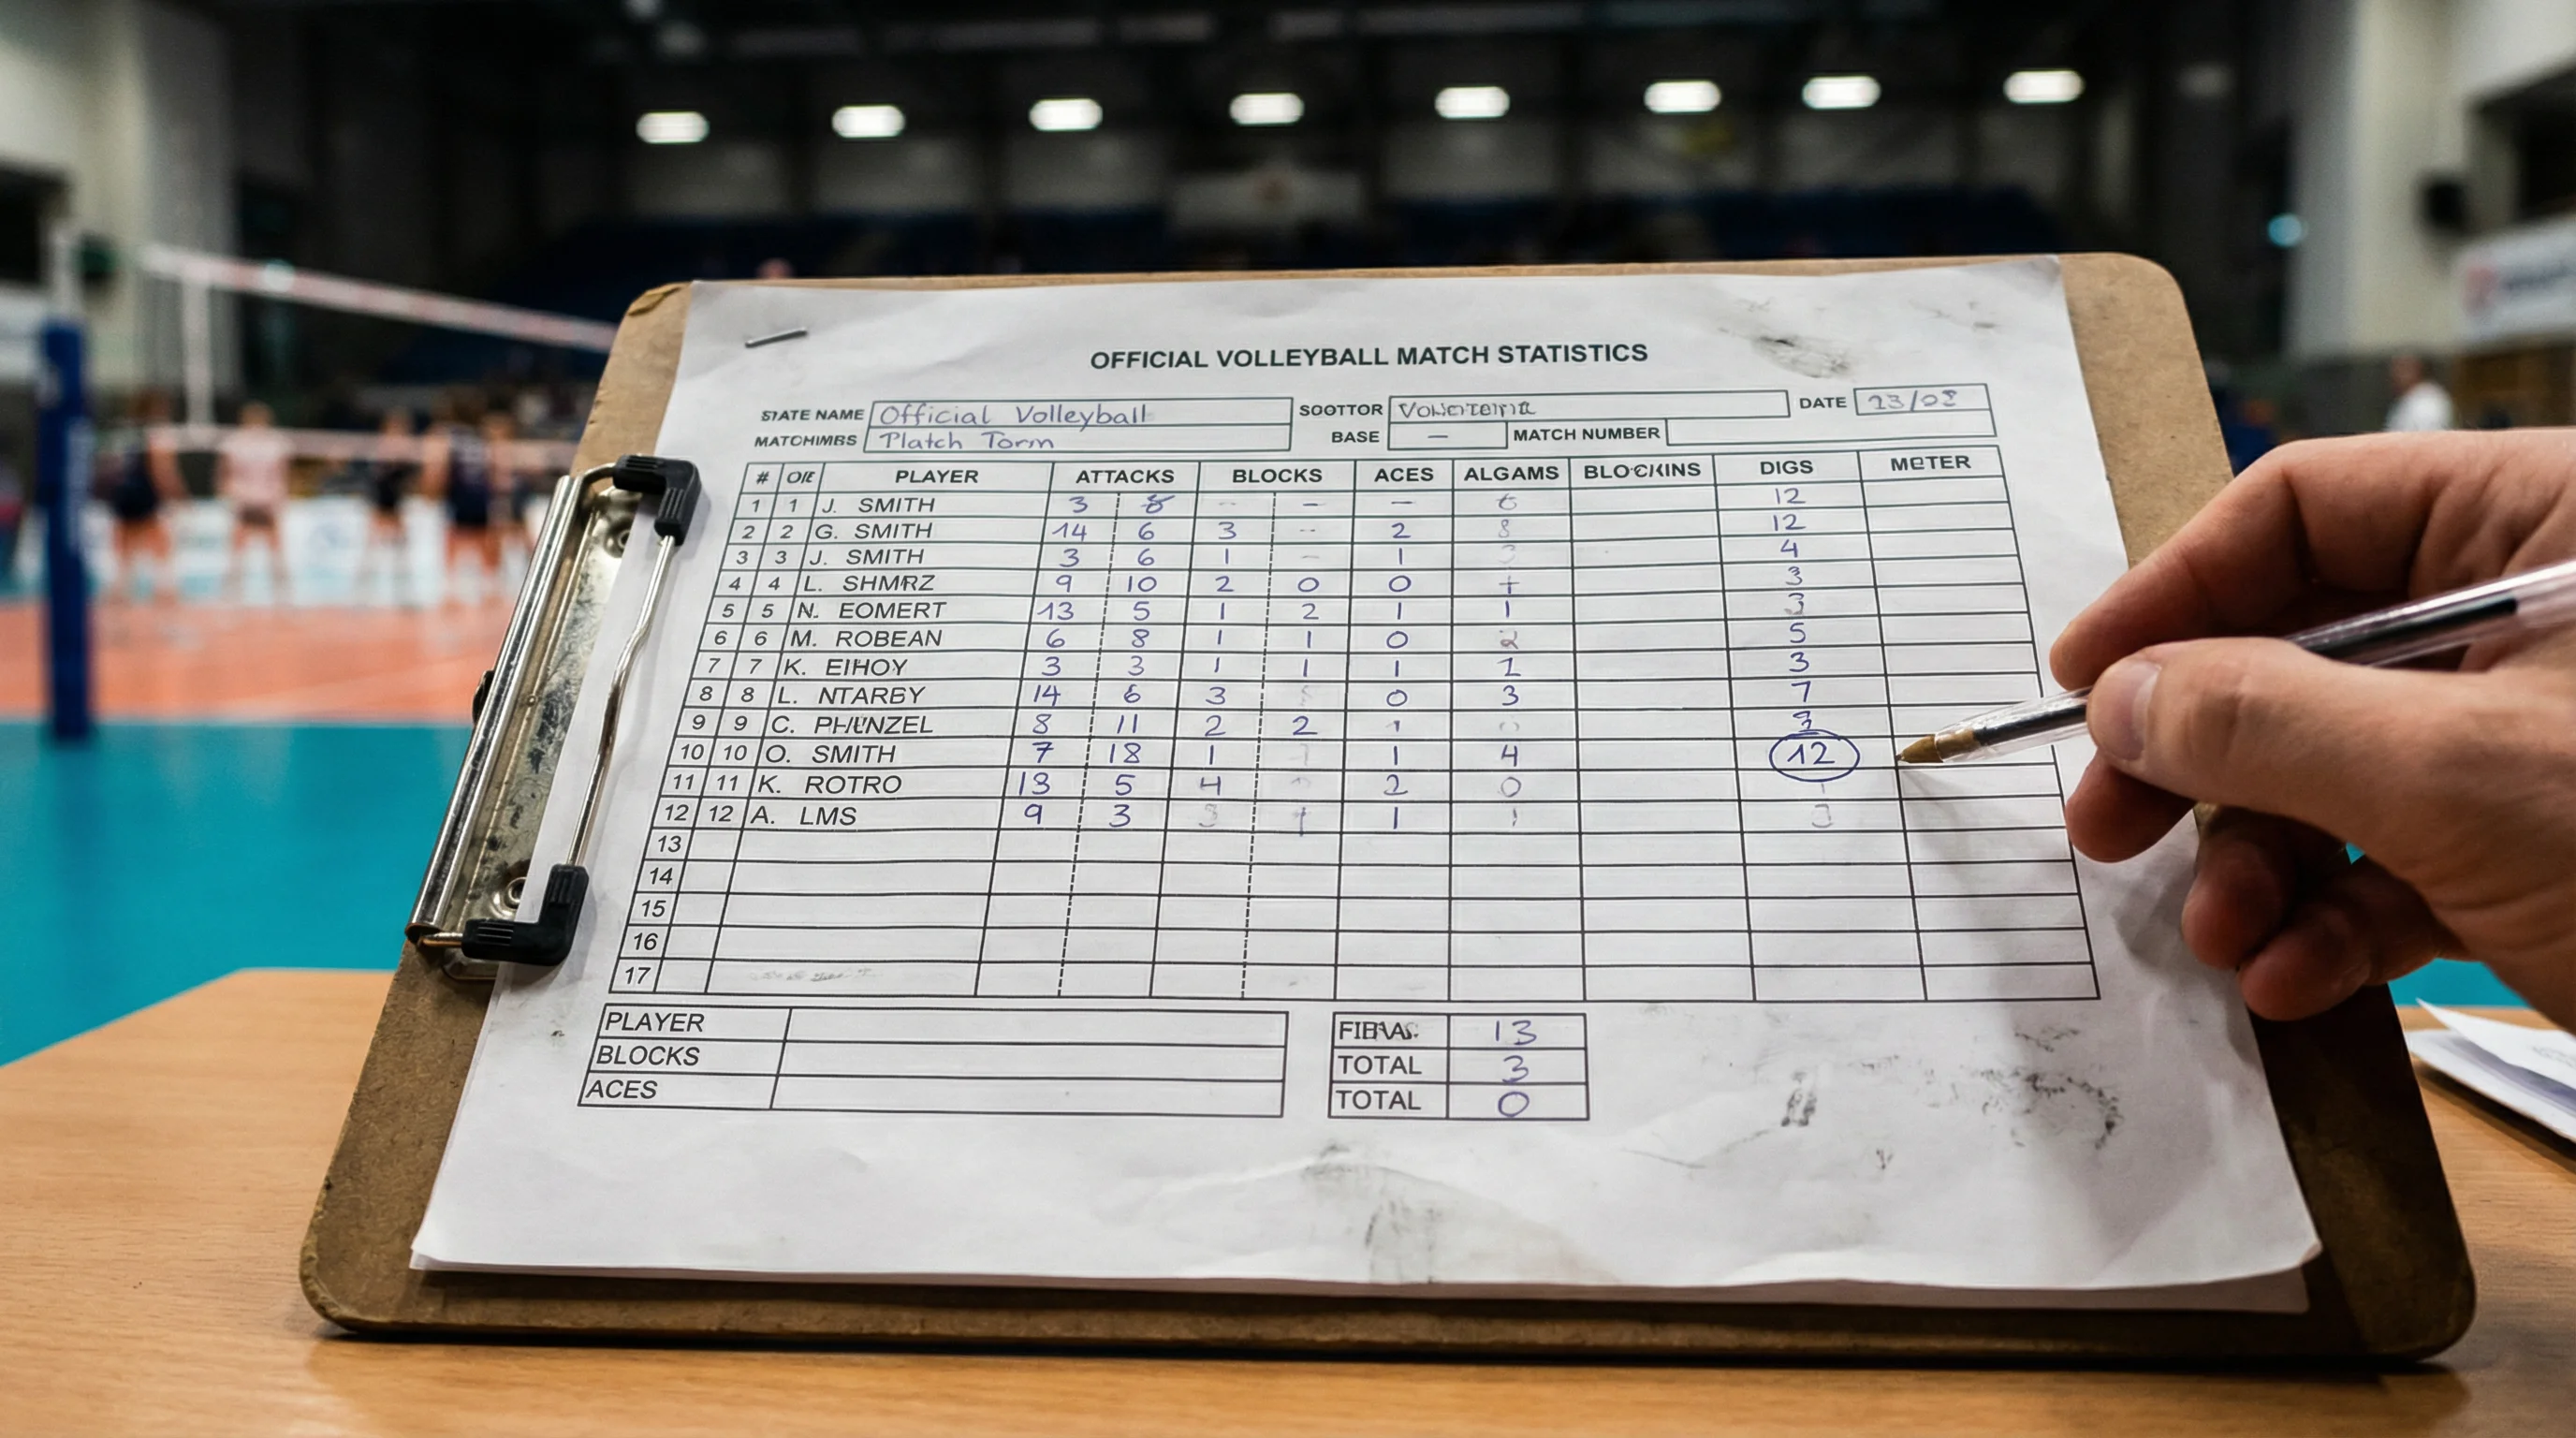 OFFICIAL VOLLEYBALL MATCH STATISTICS
STATE NAME Official Volleyball SOOTTOR DATE 23/02
MATCHIMBS Platch Torm BASE — MATCH NUMBER
# PLAYER ATTACKS BLOCKS ACES ALGAMS BLOCKINS DIGS METER
1 1 J. SMITH 3 8 -- – – 6 12
2 2 G. SMITH 14 6 3 -- 2 8 12
3 3 J. SMITH 3 6 1 – 1 4
4 4 L. SHMRZ 9 10 2 0 0 + 3
5 5 N. EOMERT 13 5 1 2 1 1 3
6 6 M. ROBEAN 6 8 1 1 0 2 5
7 7 K. EIHOY 3 3 1 1 1 1 3
8 8 L. NTARBY 14 6 3 0 3 7
9 9 C. PHUNZEL 8 11 2 2 1 3
10 10 O. SMITH 7 18 1 1 4 12
11 11 K. ROTRO 13 5 4 2 0
12 12 A. LMS 9 3 3 1 1 3
13
14
15
16
17
PLAYER
BLOCKS
ACES
13
TOTAL 3
TOTAL 0